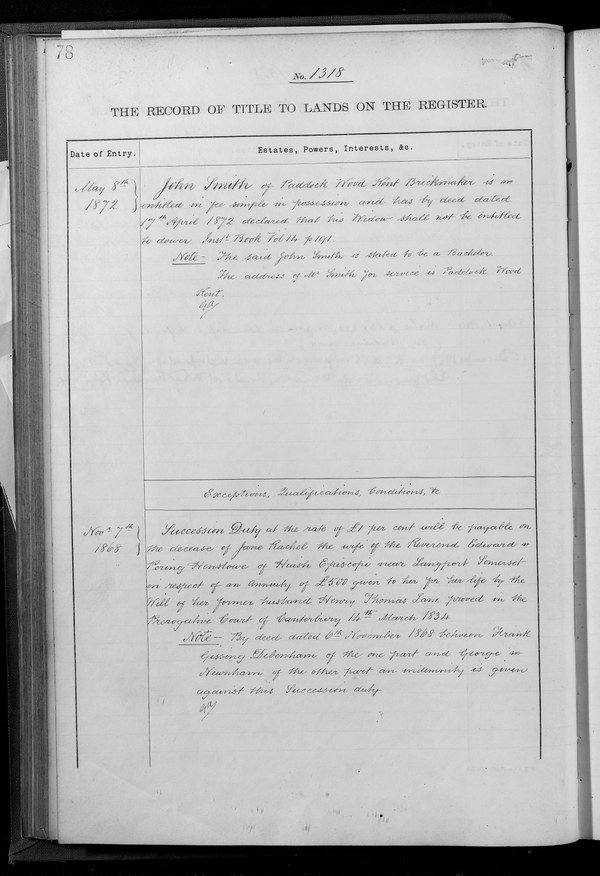 78
No. 1318
THE RECORD OF TITLE TO LANDS ON THE REGISTER.
Date of Entry.
Estates, Powers, Interests, &c.
May 8th
1872
John Smith of Paddock Wood Kent Brickmaker is
entitled in fee simple in possession and has by deed dated
17th April 1872 declared that his Widow shall not be entitled
to dower Inst. Book Vol 14 p 191
Note - The said John Smith is stated to be a Bachelor.
The address of Mr Smith for service is Paddock Wood
Kent.
Exceptions, Qualifications, Conditions, &c
Novr. 7th
1868
Succession Duty at the rate of £1 per cent will be payable on
the decease of Jane Rachel the wife of the Reverend Edward
Henslowe of Huish Episcopi near Langport Somerset
in respect of an Annuity of £500 given to her for her life by the
Will of her former husband Henry Thomas Lane proved in the
Prerogative Court of Canterbury 14th March 1834
Note - By deed dated 6th November 1868 between Frank
Gissing Debenham of the one part and George
Newnham of the other part an indemnity is given
against this Succession duty